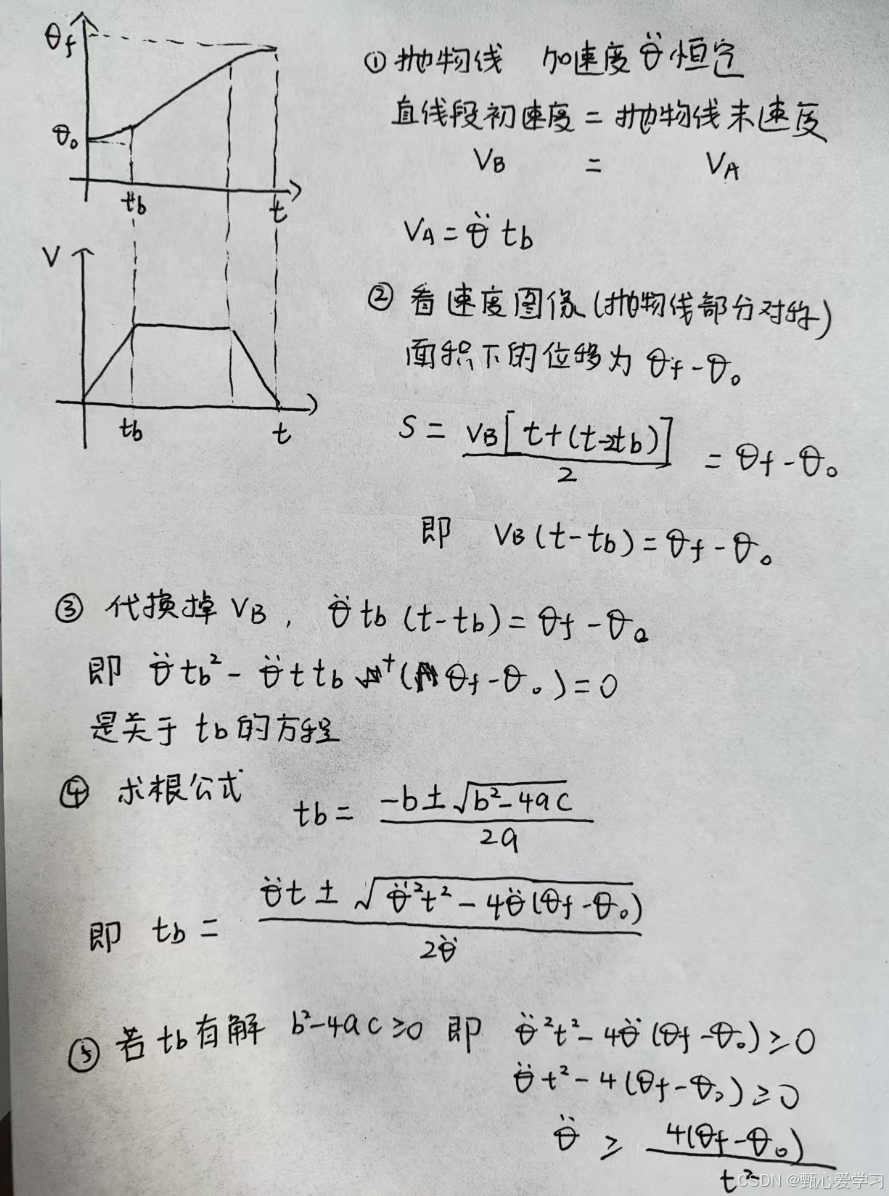 θf
θ₀
tb
t
V
tb
t
① 抛物线 加速度 θ̈ 恒定
直线段初速度 = 抛物线末速度
VB = VA
VA = θ̈ tb
② 看速度图像(抛物线部分对称)
面积下的位移为 θf-θ₀
S = VB[t+(t-2tb)]/2 = θf-θ₀
即 VB(t-tb) = θf-θ₀
③ 代换掉 VB, θ̈ tb (t-tb) = θf-θ₀
即 θ̈ tb² - θ̈ t tb + (θf-θ₀) = 0
是关于 tb 的方程
④ 求根公式 tb = (-b±√(b²-4ac))/2a
即 tb = (θ̈t ± √(θ̈²t² - 4θ̈(θf-θ₀)))/2θ̈
⑤ 若 tb 有解 b²-4ac≥0 即 θ̈²t² - 4θ̈(θf-θ₀)≥0
θ̈t² - 4(θf-θ₀)≥0
θ̈ ≥ 4(θf-θ₀)/t²
CSDN @甄心爱学习